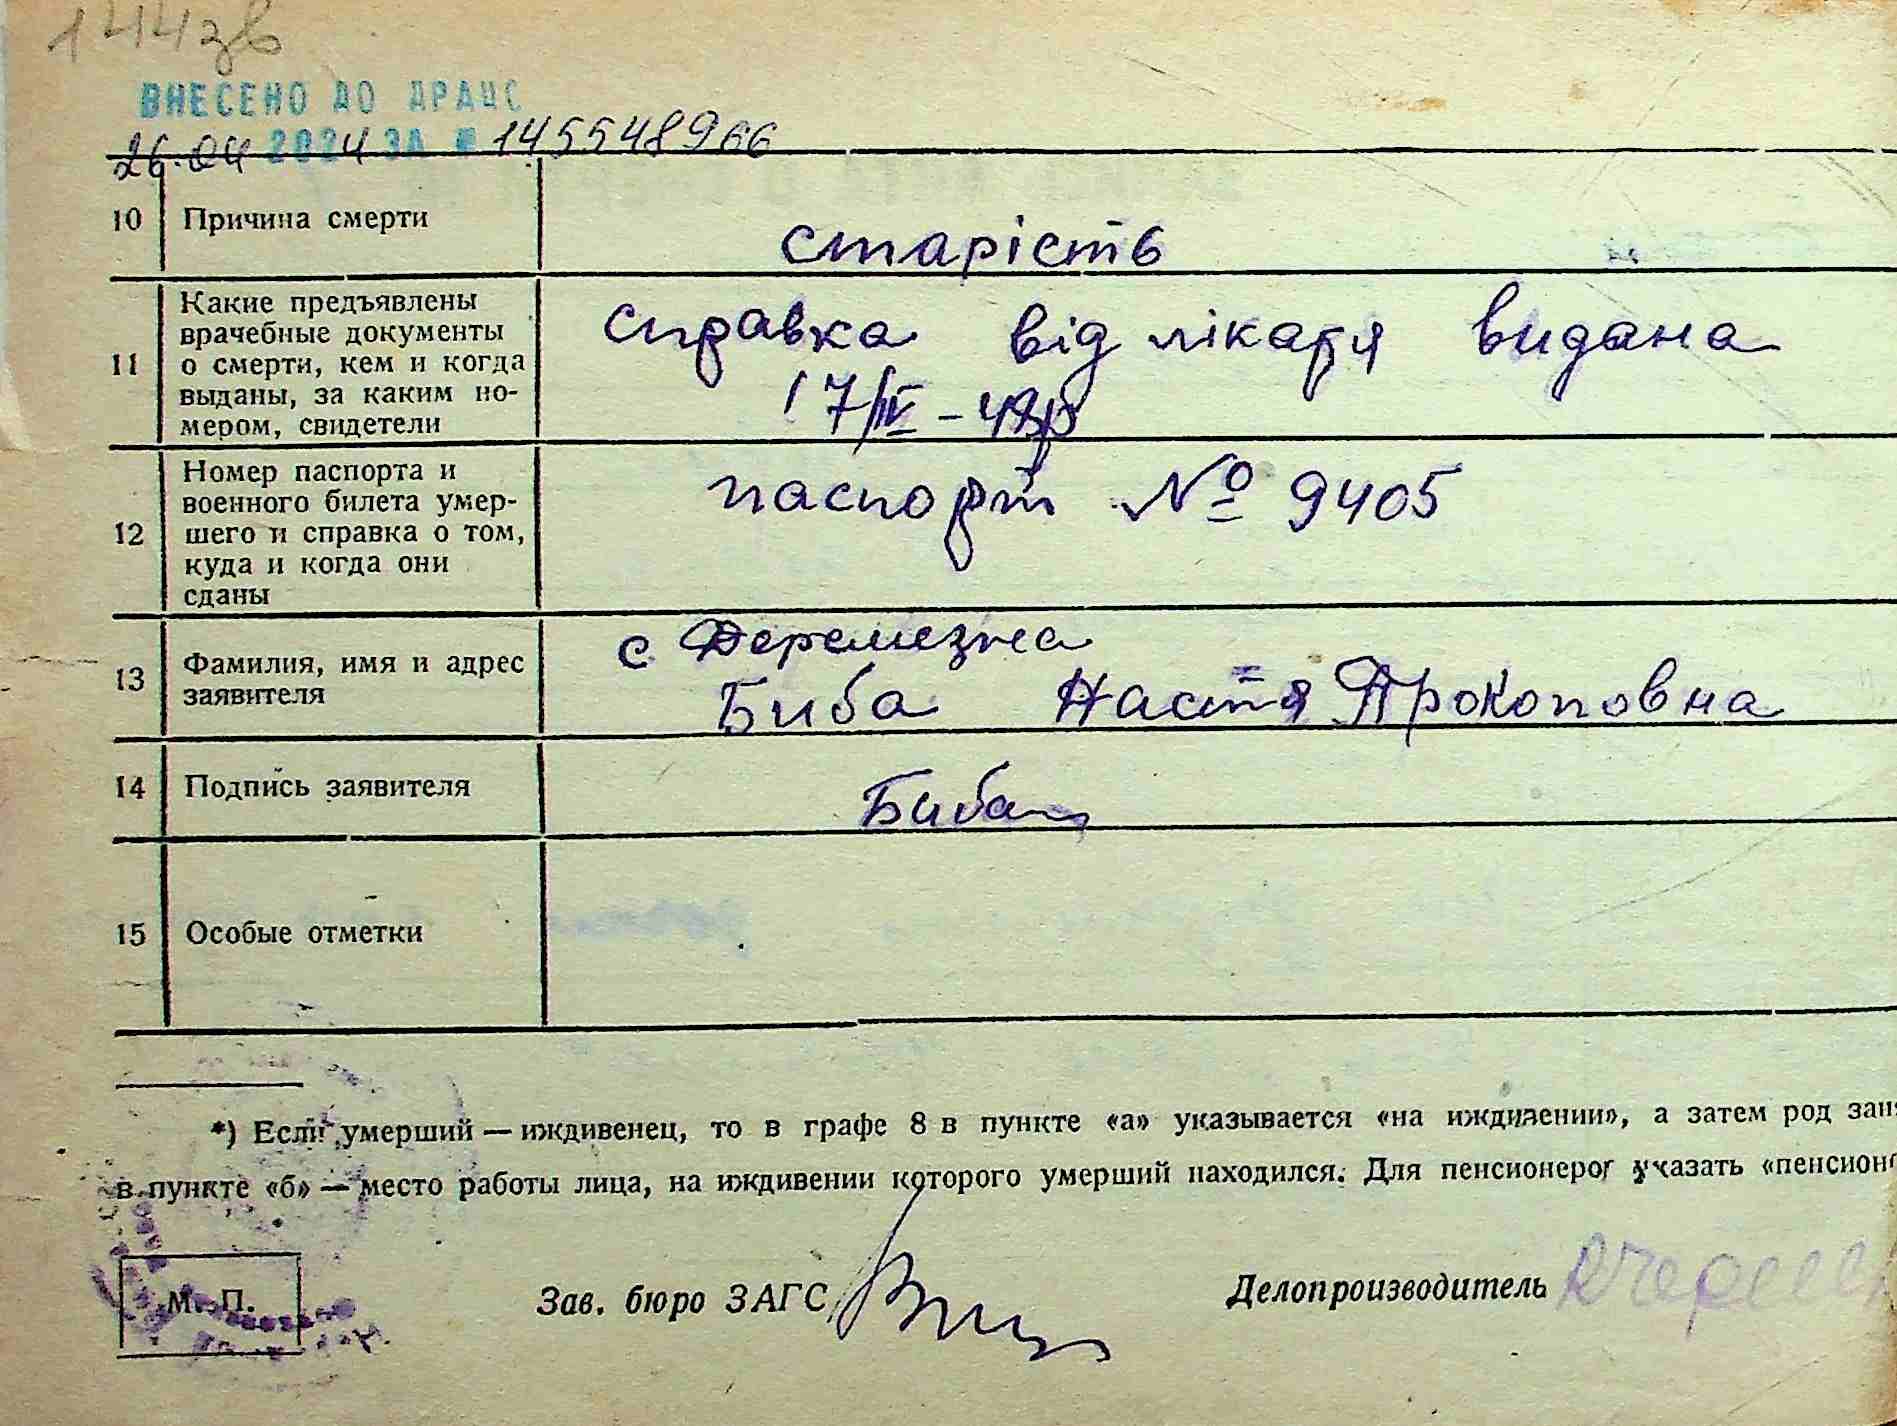 144зв
ВНЕСЕНО ДО ДРАЦС
26.04 2024 ЗА № 145548966
10 Причина смерти старість
11 Какие предъявлены врачебные документы о смерти, кем и когда выданы, за каким но-мером, свидетели
справка від лікаря видана
17/IV - 49р
12 Номер паспорта и военного билета умер-шего и справка о том, куда и когда они сданы
паспорт № 9405
13 Фамилия, имя и адрес заявителя
с Деремезна
Биба Настя Прокоповна
14 Подпись заявителя Биба
15 Особые отметки
*) Если умерший — иждивенец, то в графе 8 в пункте «а» указывается «на иждивении», а затем род зан
в пункте «б» — место работы лица, на иждивении которого умерший находился. Для пенсионеров указать «пенсион
М. П. Зав. бюро ЗАГС Делопроизводитель